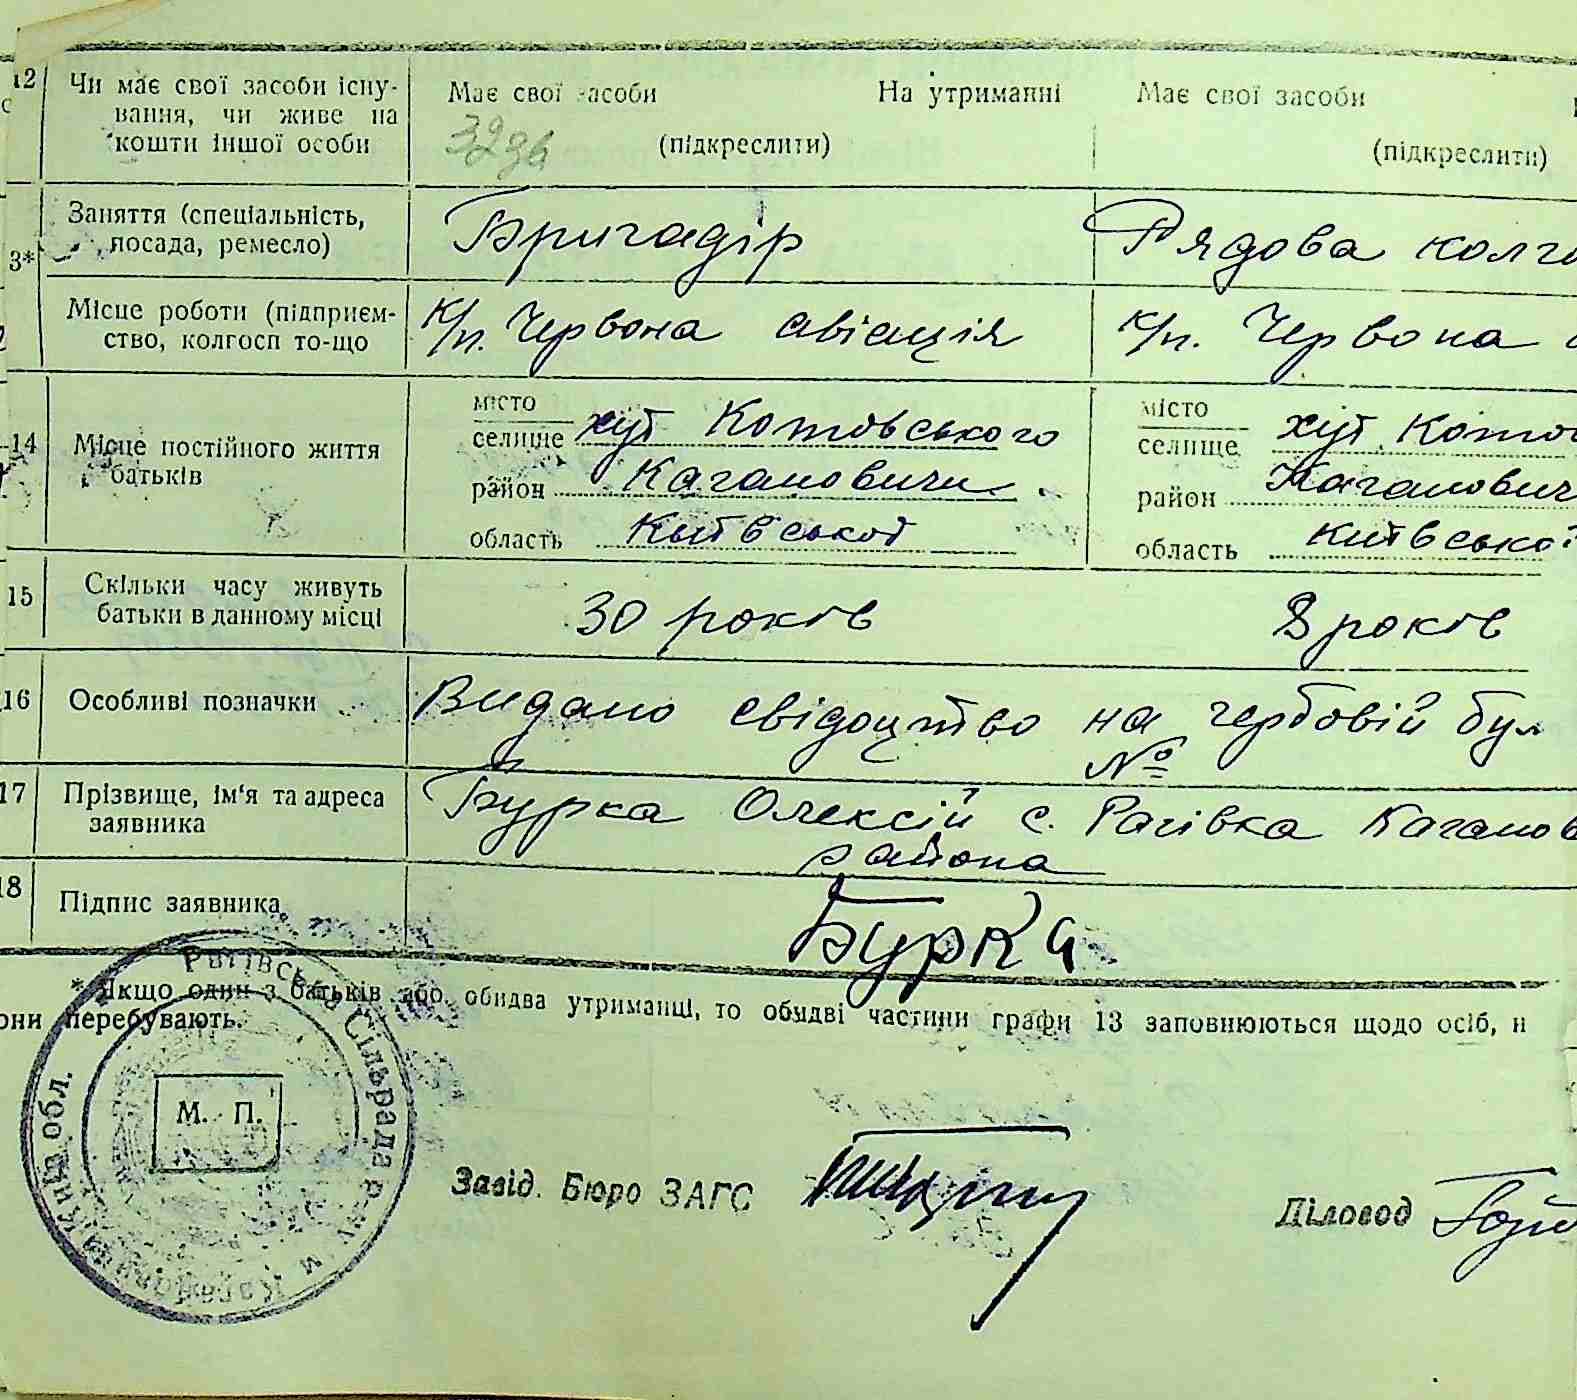 12 Чи має свої засоби існу- Має свої засоби На утриманні Має свої засоби
вання, чи живе на
кошти іншої особи (підкреслити) (підкреслити)
Заняття (спеціальність, Бригадір Рядова колго
посада, ремесло)
3*
Місце роботи (підприєм- К/п. Червона авіація К/п. Червона
ство, колгосп то-що
14 Місце постійного життя місто місто
батьків селище хут Котовського селище хут. Кото
район Кагановичи район Каганович
область Київської область Київської
15 Скільки часу живуть 30 років 8 років
батьки в данному місці
16 Особливі позначки Видано свідоцтво на гербовій бул
№
17 Прізвище, ім'я та адреса Бурка Олексій с. Рагівка Каганов
заявника района
18 Підпис заявника Бурка
* Якщо один з батьків або обидва утриманці, то обидві частини графи 13 заповнюються щодо осіб, н
они перебувають.
Рагівська Сільрада р-ну м Кагановича Київська обл.
М. П.
Завід. Бюро ЗАГС Діловод